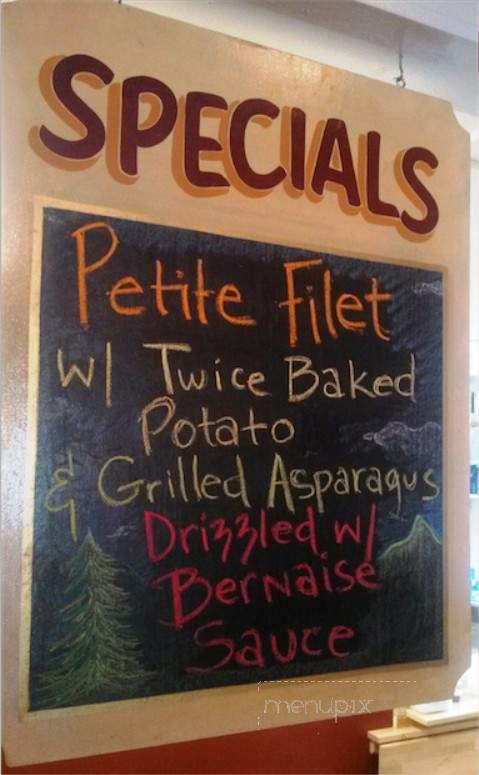 SPECIALS
Petite Filet
w/ Twice Baked
Potato
& Grilled Asparagus
Drizzled w/
Bernaise
Sauce
menupix